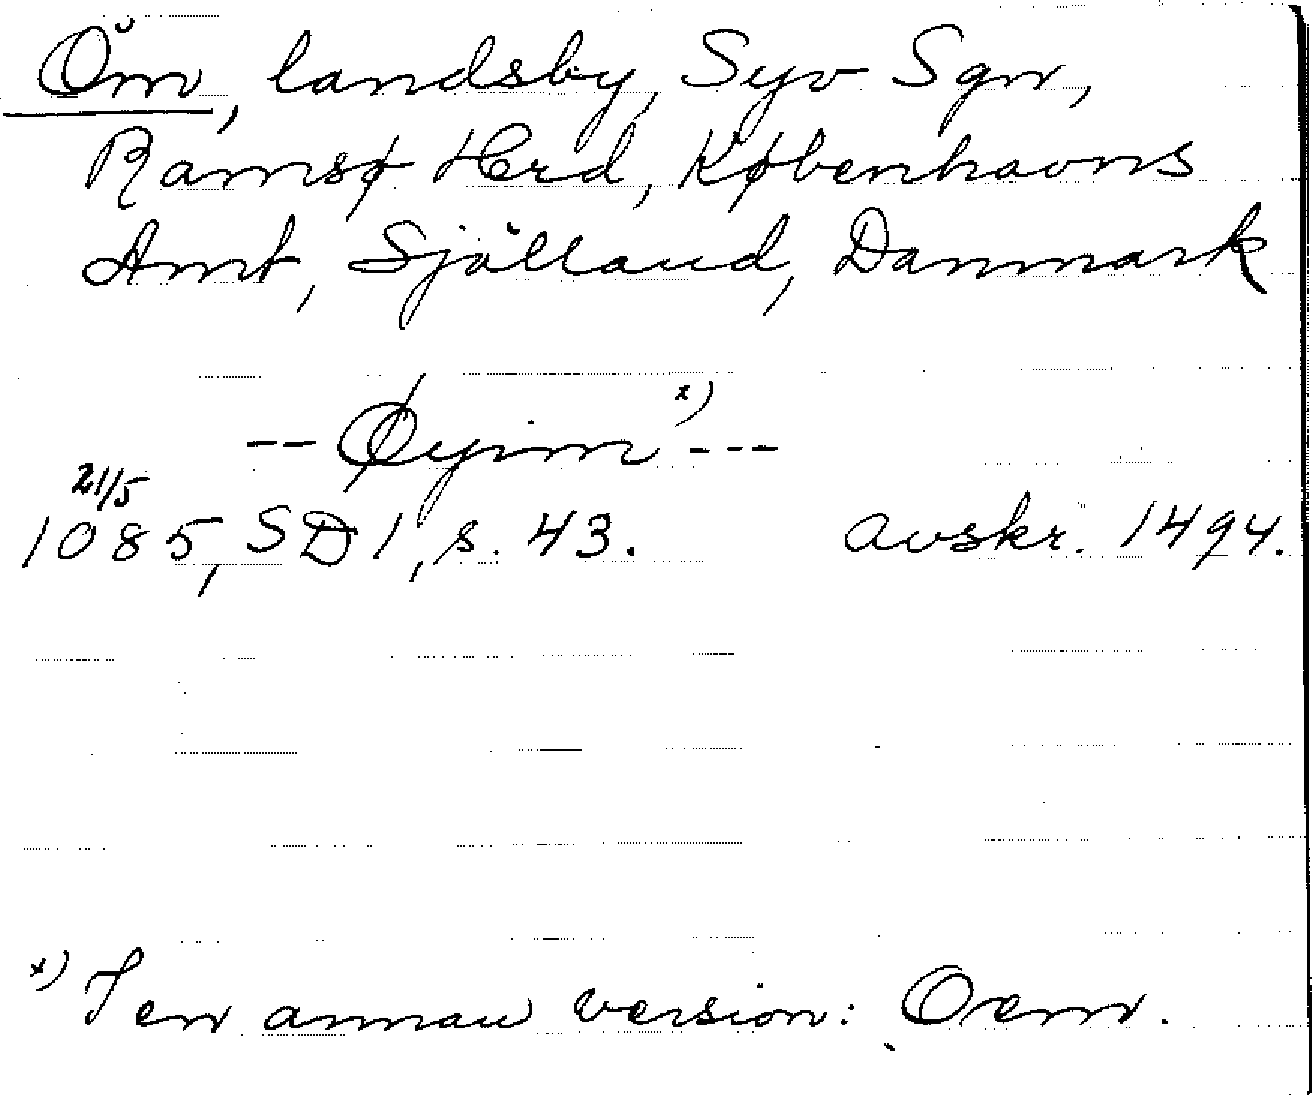 Öm, landsby, Syv Sgn,
Ramsø Hrd, Københavns
Amt, Själland, Danmark
-- Øyim x) ---
21/5
1085, SD 1, s. 43. avskr. 1494.
x) I en annan version: Oem.